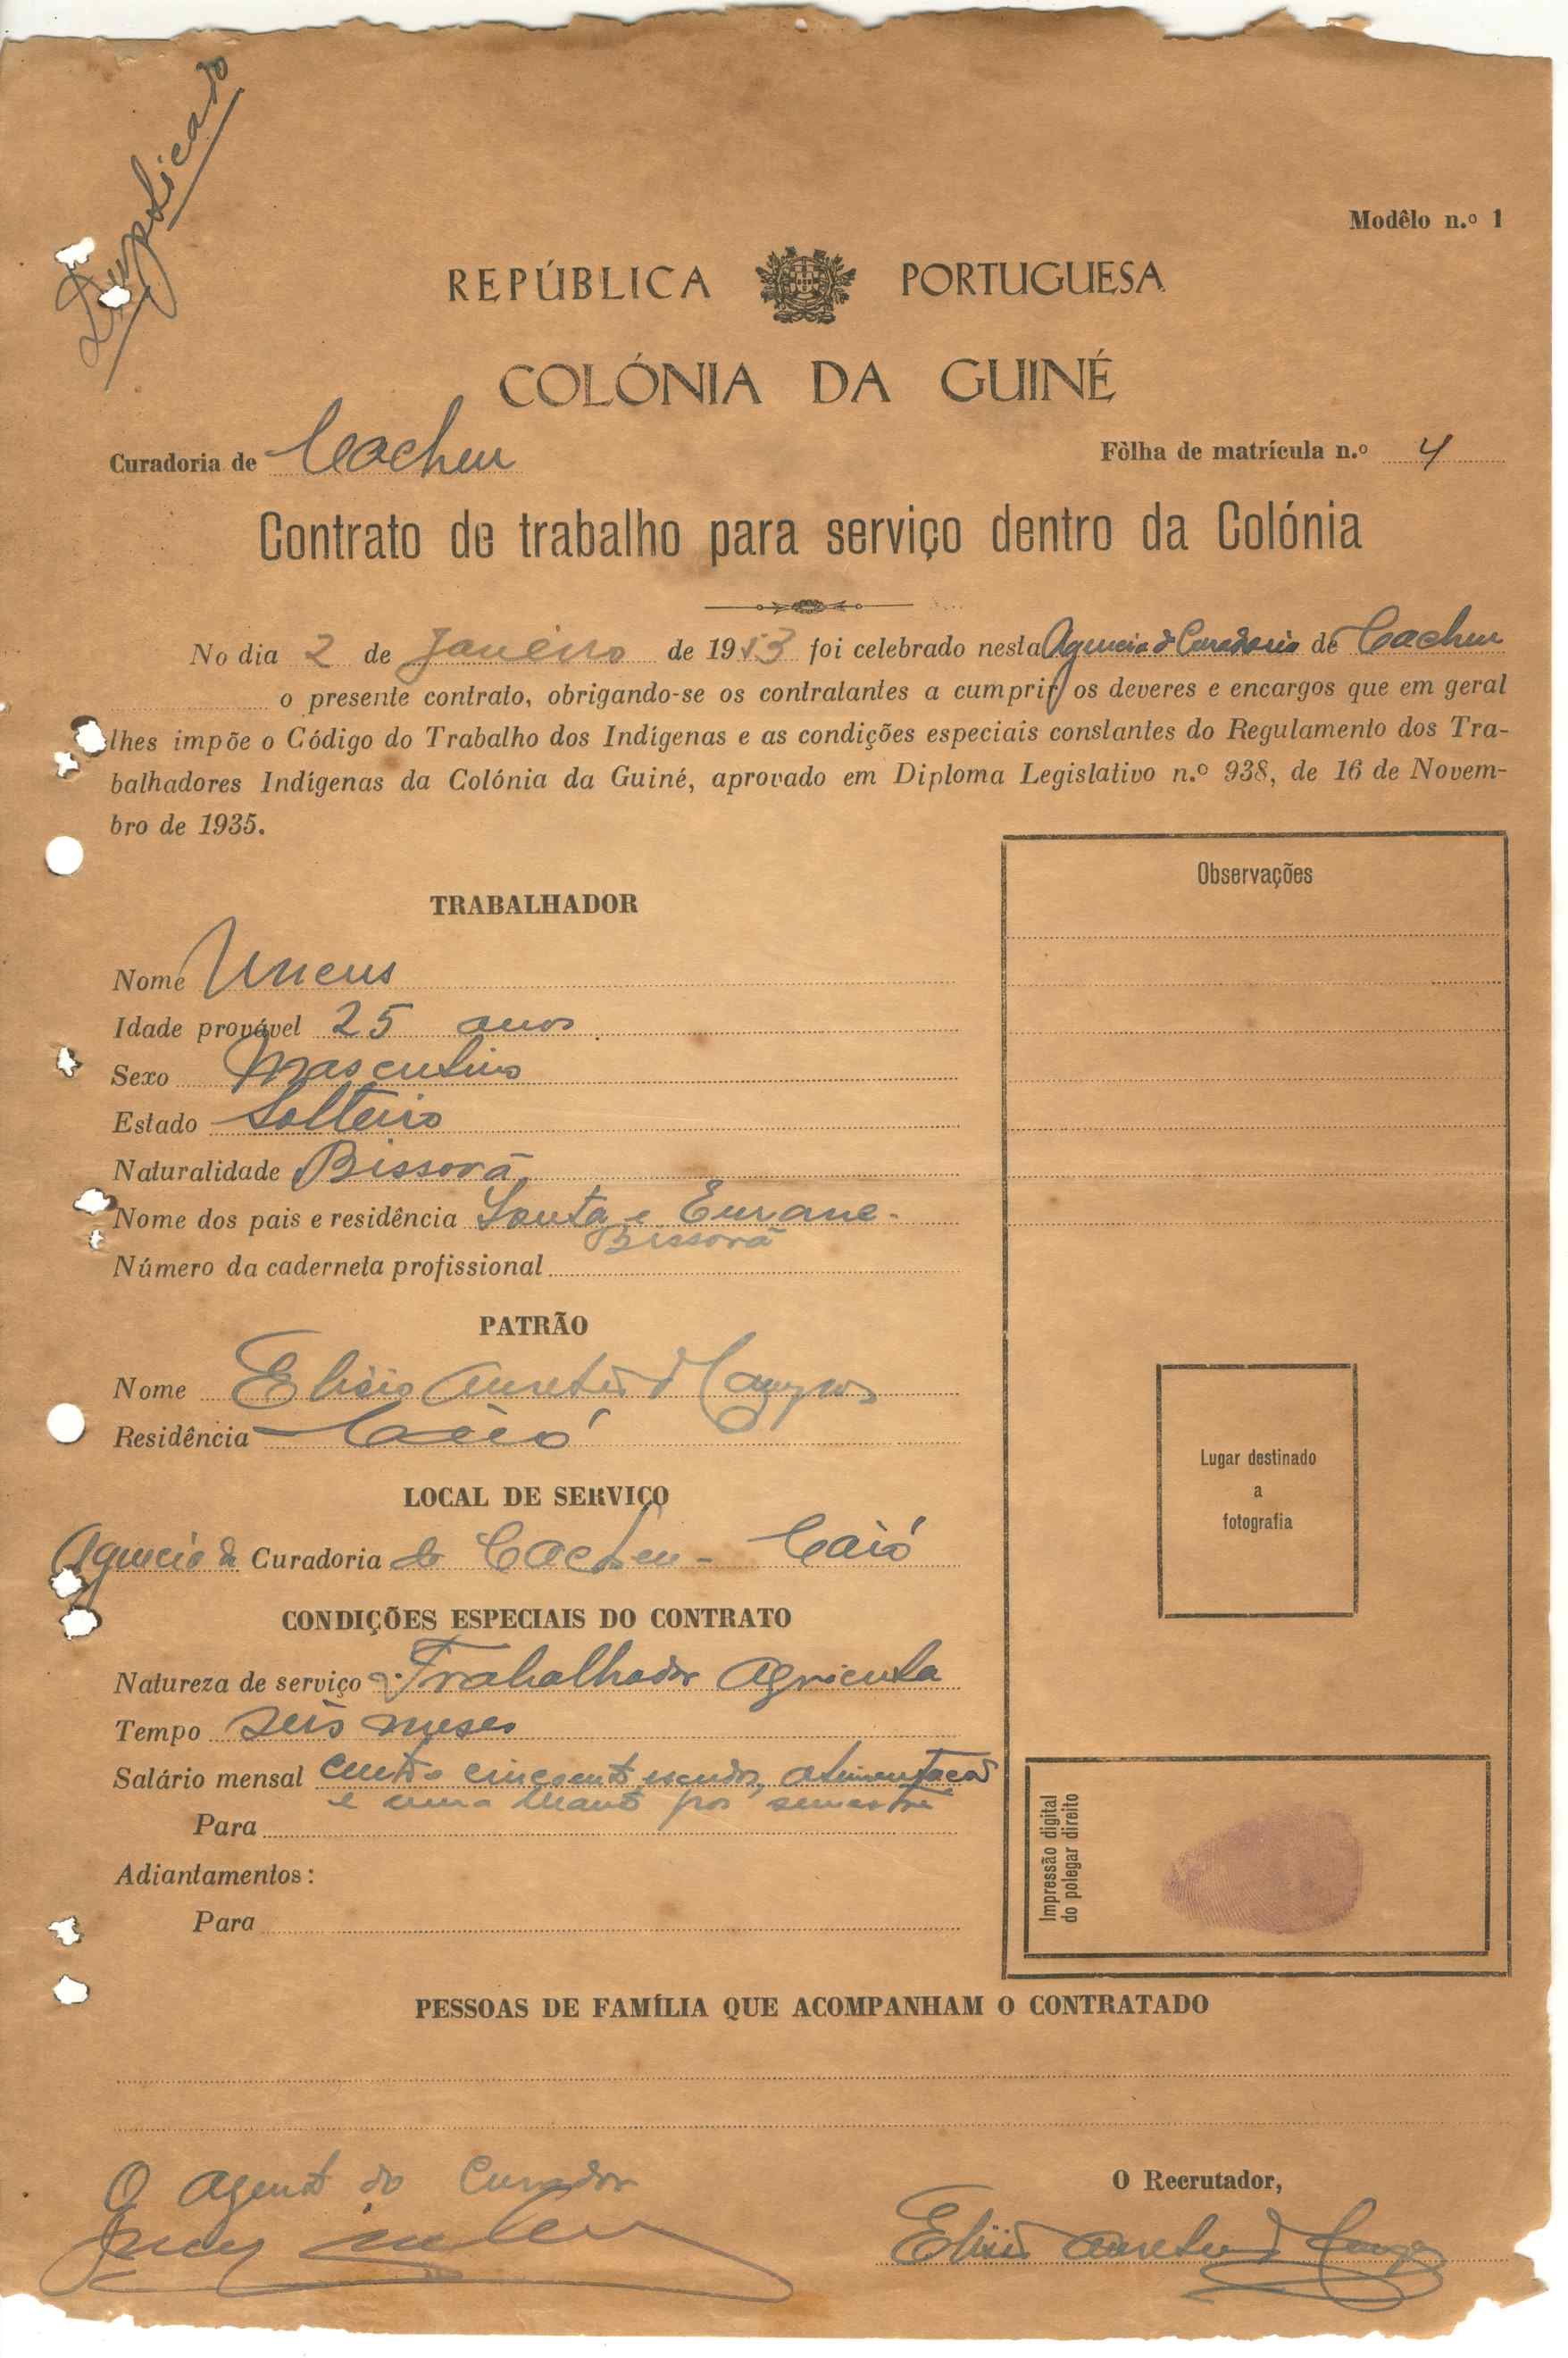 Duplicado
Modêlo n.º 1
REPÚBLICA PORTUGUESA
COLÓNIA DA GUINÉ
Curadoria de Cacheu Fôlha de matrícula n.º 4
Contrato de trabalho para serviço dentro da Colónia
No dia 2 de Janeiro de 1953 foi celebrado nesta Agencia d Curadoria de Cacheu
o presente contrato, obrigando-se os contratantes a cumprir os deveres e encargos que em geral
lhes impõe o Código do Trabalho dos Indígenas e as condições especiais constantes do Regulamento dos Tra-
balhadores Indígenas da Colónia da Guiné, aprovado em Diploma Legislativo n.º 938, de 16 de Novem-
bro de 1935.
Observações
TRABALHADOR
Nome
Idade provável 25 anos
Sexo Masculino
Estado Solteiro
Naturalidade Bissorã
Nome dos pais e residência e
Bissorã
Número da caderneta profissional
PATRÃO
Nome Elisio Aurelio d Campos
Residência Caió
Lugar destinado
a
fotografia
LOCAL DE SERVIÇO
Agencia da Curadoria de Cacheu - Caió
CONDIÇÕES ESPECIAIS DO CONTRATO
Natureza de serviço Trabalhador Agricula
Tempo seis meses
Salário mensal cento e cincoenta escudos, alimentação
e uma manta por semestre
Para
Adiantamentos:
Para
Impressão digital
do polegar direito
PESSOAS DE FAMÍLIA QUE ACOMPANHAM O CONTRATADO
O Agente do Curador
O Recrutador,
Elisio Aurelio d Campos